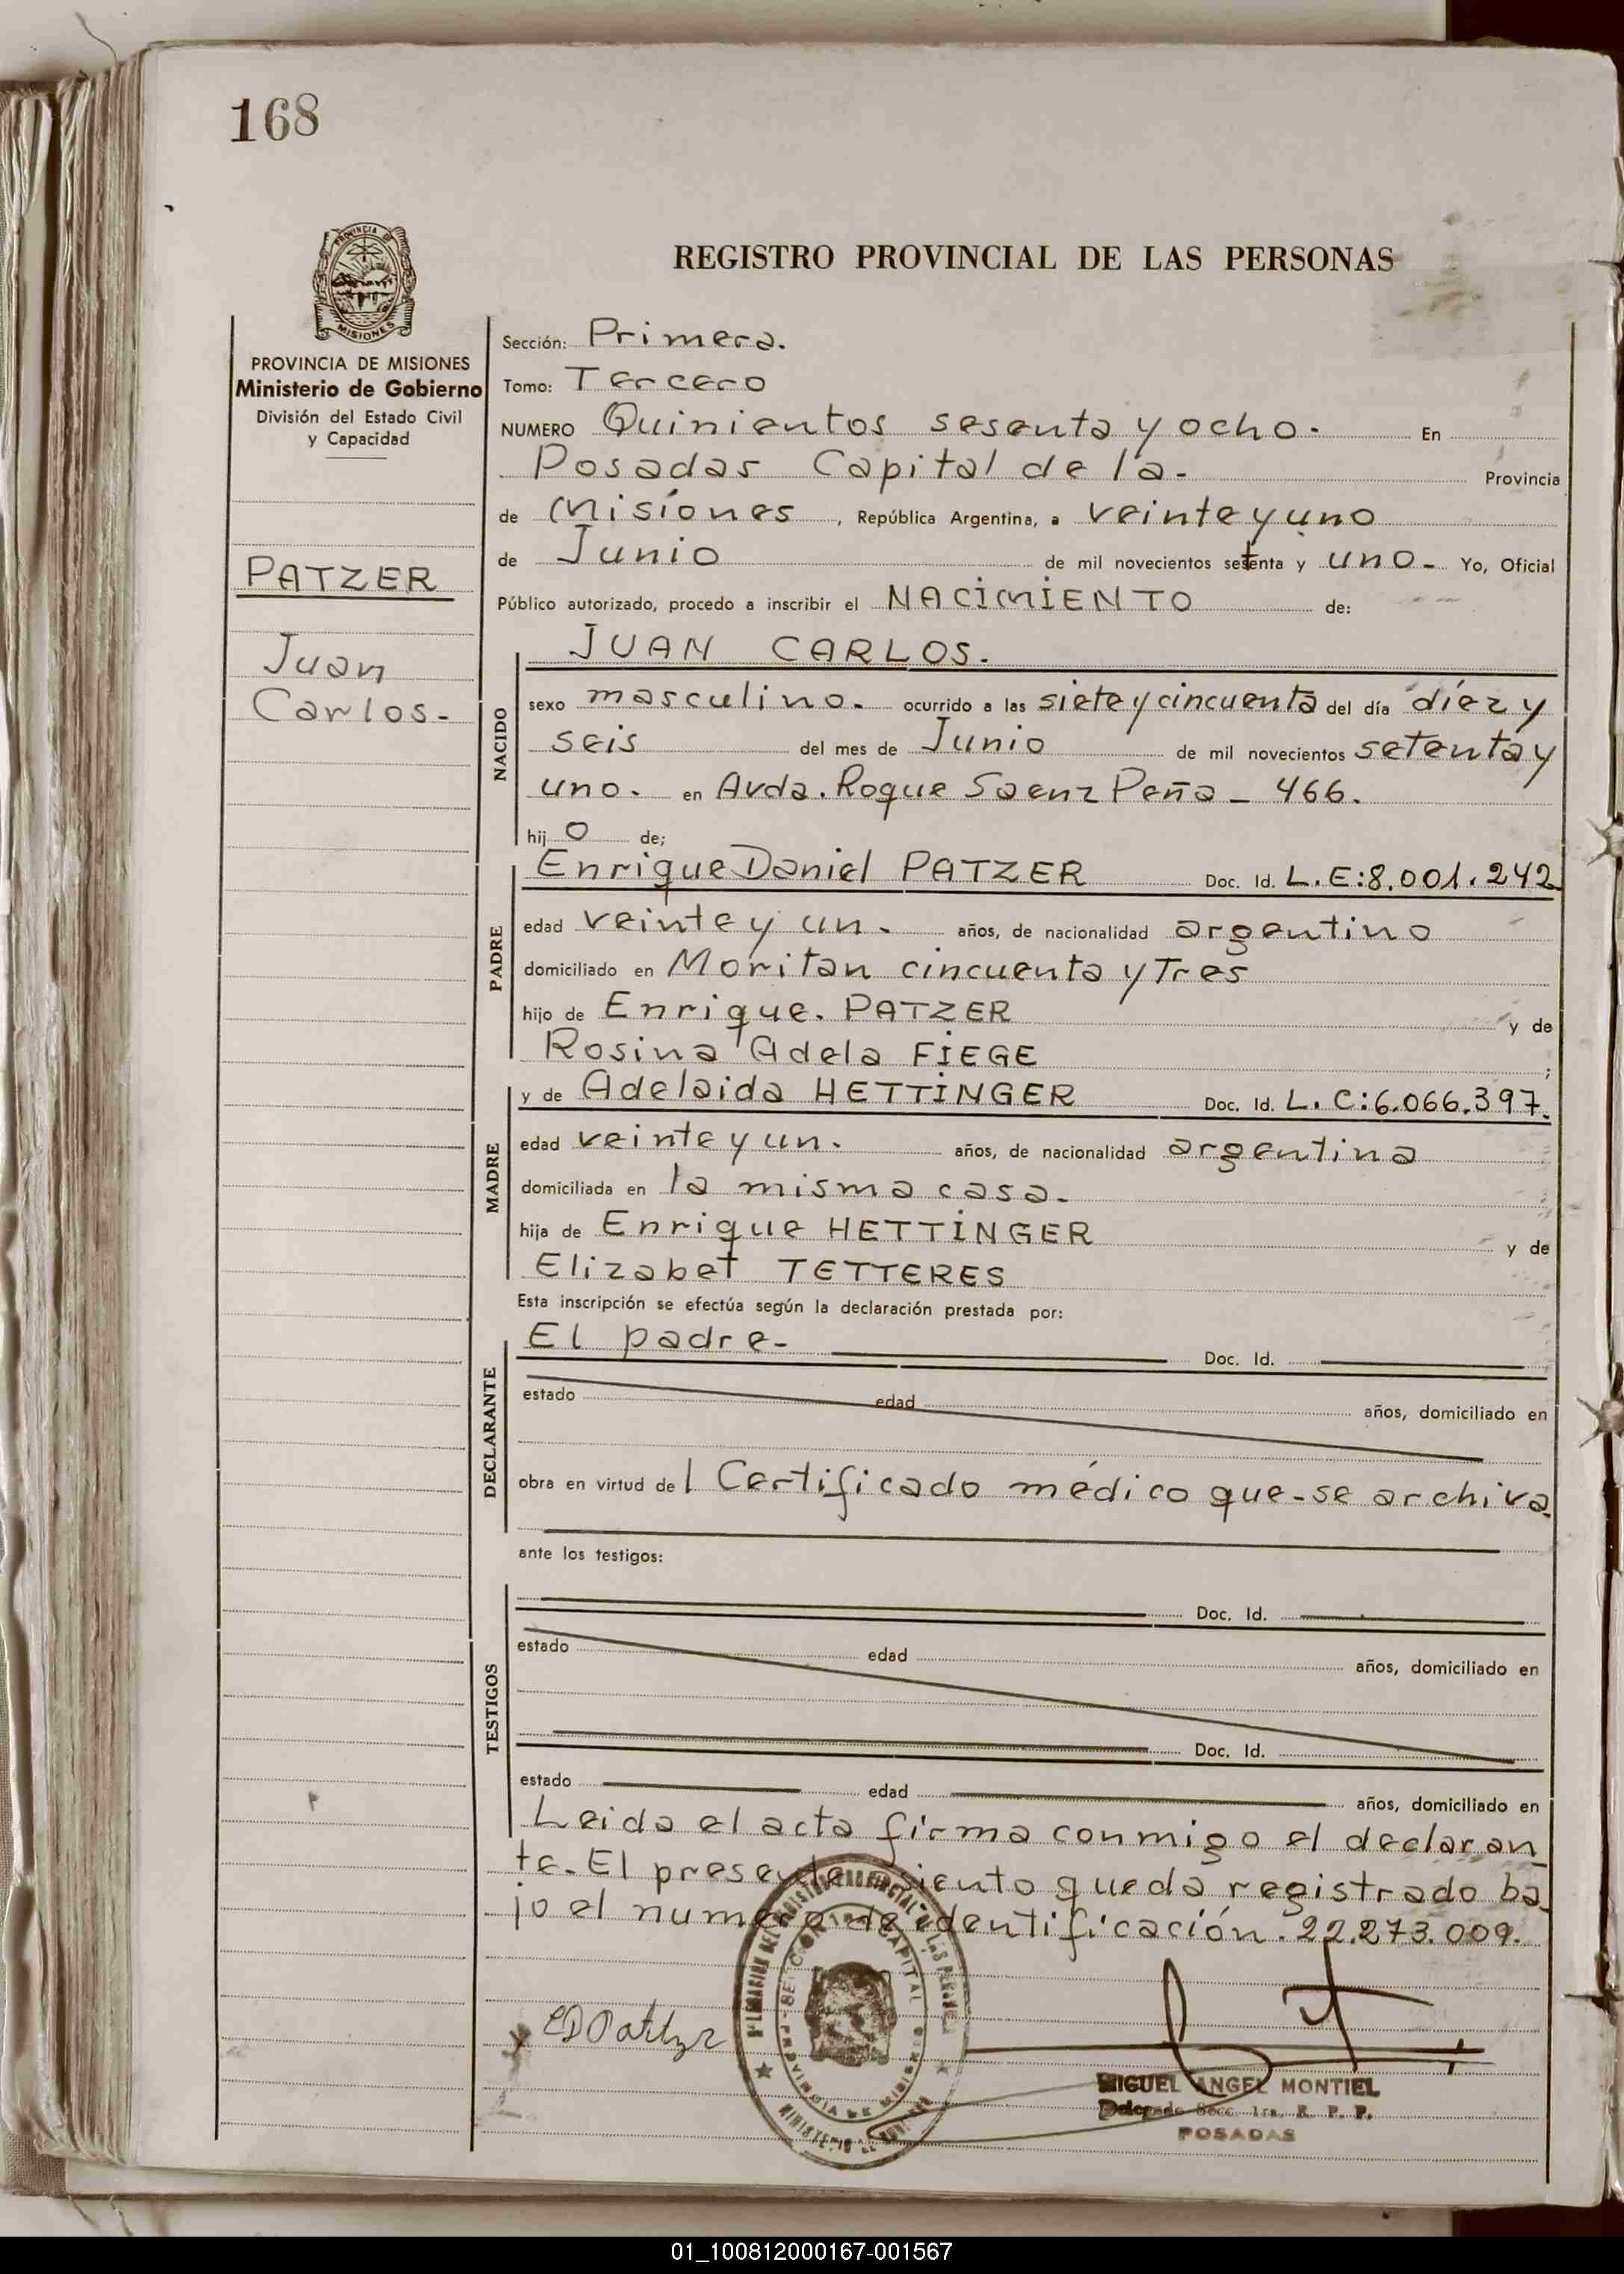 168
PROVINCIA DE
MISIONES
REGISTRO PROVINCIAL DE LAS PERSONAS
PROVINCIA DE MISIONES
Ministerio de Gobierno
División del Estado Civil
y Capacidad
PATZER
Juan
Carlos-
Sección: Primera.
Tomo: Tercero
NUMERO Quinientos sesenta y ocho. En
Posadas Capital de la- Provincia
de Misiones, República Argentina, a veinte y uno
de Junio de mil novecientos setenta y uno- Yo, Oficial
Público autorizado, procedo a inscribir el NACIMIENTO de:
NACIDO
JUAN CARLOS.
sexo masculino. ocurrido a las siete y cincuenta del día diez y
seis del mes de Junio de mil novecientos setenta y
uno. en Avda. Roque Saenz Peña - 466.
hijo de;
PADRE
Enrique Daniel PATZER Doc. Id. L.E:8.001.242
edad veinte y un. años, de nacionalidad argentino
domiciliado en Moritan cincuenta y Tres
hijo de Enrique. PATZER y de
Rosina Adela FIEGE ;
MADRE
y de Adelaida HETTINGER Doc. Id. L.C:6.066.397.
edad veinte y un. años, de nacionalidad argentina
domiciliada en la misma casa.
hija de Enrique HETTINGER y de
Elizabet TETTERES
Esta inscripción se efectúa según la declaración prestada por:
DECLARANTE
El padre- Doc. Id.
estado edad años, domiciliado en
obra en virtud del Certificado médico que-se archiva
ante los testigos:
TESTIGOS
Doc. Id.
estado edad años, domiciliado en
Doc. Id.
estado edad años, domiciliado en
Leida el acta firma conmigo el declaran
te. El presente asiento queda registrado ba
jo el numero de identificación. 22.273.009.
EDPatzer
MIGUEL ANGEL MONTIEL
Delegado Secc. 1ra. R. P. P.
POSADAS
01_100812000167-001567